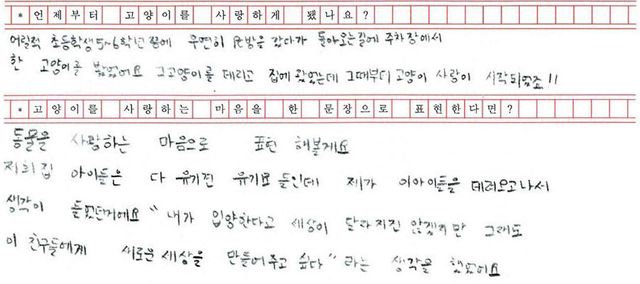 * 언제부터 고양이를 사랑하게 됐나요?
어릴적 초등학생 5~6학년 쯤에 우연히 pc방을 갔다가 돌아오는길에 주차장에서
한 고양이를 봤었어요 그고양이를 데리고 집에 왔었는데 그때부터 고양이 사랑이 시작되었죠!!
* 고양이를 사랑하는 마음을 한 문장으로 표현한다면?
동물을 사랑하는 마음으로 표현 해볼게요
저희집 아이들은 다 유기견 유기묘 들인데 제가 이아이들을 데려오고나서
생각이 들었던거에요 "내가 입양한다고 세상이 달라지진 않겠지만 그래도
이 친구들에게 새로운 세상을 만들어주고 싶다" 라는 생각을 했었어요